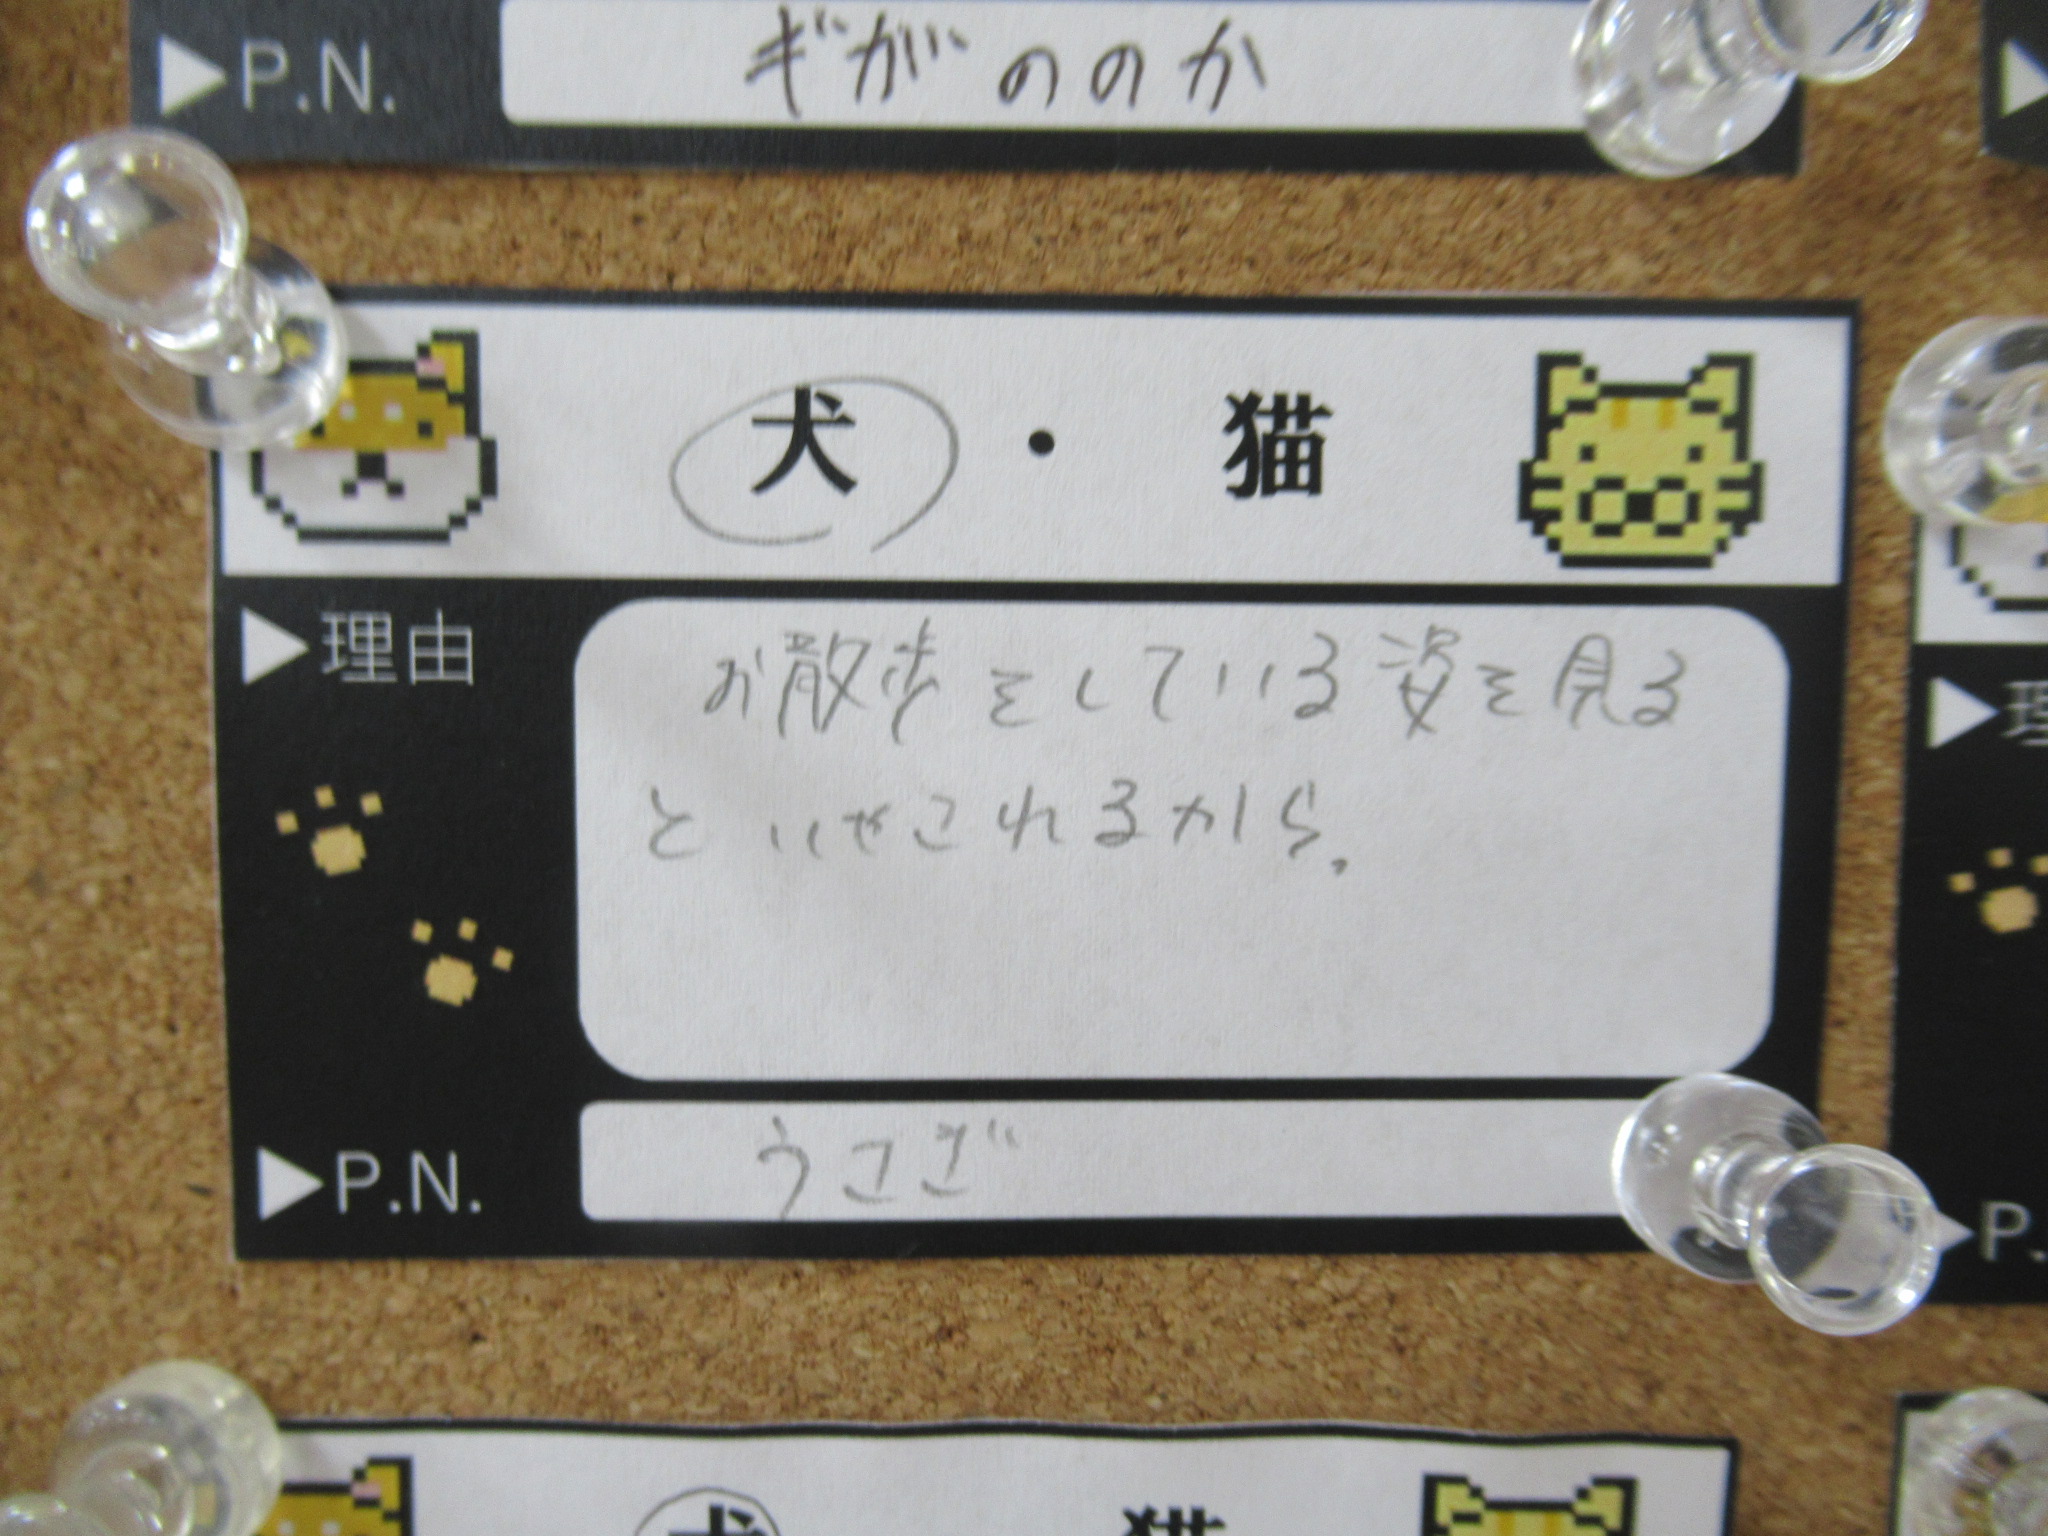 ▶P.N. ギガののか
犬・猫
▶理由
お散歩をしている姿を見る
といやされるから。
▶P.N. うさぎ
犬 猫